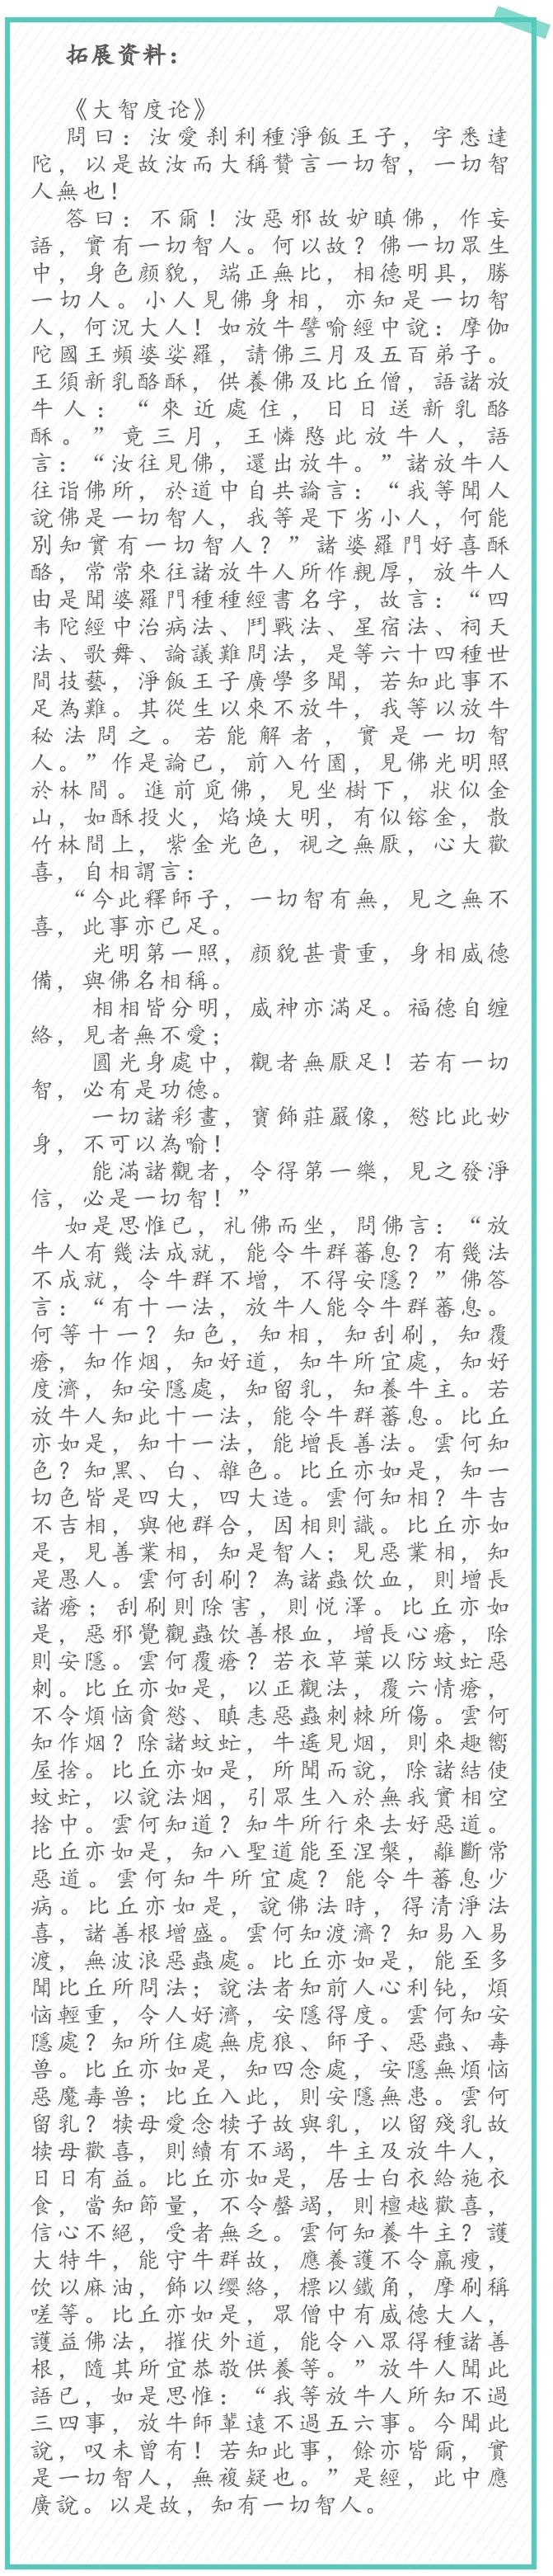 拓展资料：
《大智度论》
問曰：汝愛刹利種淨飯王子，字悉達
陀，以是故汝而大稱贊言一切智，一切智
人無也！
答曰：不爾！汝惡邪故妒瞋佛，作妄
語，實有一切智人。何以故？佛一切眾生
中，身色颜貌，端正無比，相德明具，勝
一切人。小人見佛身相，亦知是一切智
人，何況大人！如放牛譬喻經中說：摩伽
陀國王頻婆娑羅，請佛三月及五百弟子。
王須新乳酪酥，供養佛及比丘僧，語諸放
牛人：“來近處住，日日送新乳酪
酥。”竟三月，王憐愍此放牛人，語
言：“汝往見佛，還出放牛。”諸放牛人
往诣佛所，於道中自共論言：“我等聞人
說佛是一切智人，我等是下劣小人，何能
別知實有一切智人？”諸婆羅門好喜酥
酪，常常來往諸放牛人所作親厚，放牛人
由是聞婆羅門種種經書名字，故言：“四
韦陀經中治病法、鬥戰法、星宿法、祠天
法、歌舞、論議難問法，是等六十四種世
間技藝，淨飯王子廣學多聞，若知此事不
足為難。其從生以來不放牛，我等以放牛
秘法問之。若能解者，實是一切智
人。”作是論已，前入竹園，見佛光明照
於林間。進前覓佛，見坐樹下，狀似金
山，如酥投火，焰焕大明，有似镕金，散
竹林間上，紫金光色，視之無厭，心大歡
喜，自相謂言：
“今此釋師子，一切智有無，見之無不
喜，此事亦已足。
光明第一照，颜貌甚貴重，身相威德
備，與佛名相稱。
相相皆分明，威神亦滿足。福德自缠
絡，見者無不愛；
圓光身處中，觀者無厭足！若有一切
智，必有是功德。
一切諸彩畫，寶飾莊嚴像，慾比此妙
身，不可以為喻！
能滿諸觀者，令得第一樂，見之發淨
信，必是一切智！”
如是思惟已，礼佛而坐，問佛言：“放
牛人有幾法成就，能令牛群蕃息？有幾法
不成就，令牛群不增，不得安隱？”佛答
言：“有十一法，放牛人能令牛群蕃息。
何等十一？知色，知相，知刮刷，知覆
瘡，知作烟，知好道，知牛所宜處，知好
度濟，知安隱處，知留乳，知養牛主。若
放牛人知此十一法，能令牛群蕃息。比丘
亦如是，知十一法，能增長善法。雲何知
色？知黑、白、雜色。比丘亦如是，知一
切色皆是四大，四大造。雲何知相？牛吉
不吉相，與他群合，因相則識。比丘亦如
是，見善業相，知是智人；見惡業相，知
是愚人。雲何刮刷？為諸蟲饮血，則增長
諸瘡；刮刷則除害，則悦澤。比丘亦如
是，惡邪覺觀蟲饮善根血，增長心瘡，除
則安隱。雲何覆瘡？若衣草葉以防蚊虻惡
刺。比丘亦如是，以正觀法，覆六情瘡，
不令煩恼貪慾、瞋恚惡蟲刺棘所傷。雲何
知作烟？除諸蚊虻，牛遥見烟，則來趣嚮
屋捨。比丘亦如是，所聞而說，除諸結使
蚊虻，以說法烟，引眾生入於無我實相空
捨中。雲何知道？知牛所行來去好惡道。
比丘亦如是，知八聖道能至涅槃，離斷常
惡道。雲何知牛所宜處？能令牛蕃息少
病。比丘亦如是，說佛法時，得清淨法
喜，諸善根增盛。雲何知渡濟？知易入易
渡，無波浪惡蟲處。比丘亦如是，能至多
聞比丘所問法；說法者知前人心利钝，煩
恼輕重，令人好濟，安隱得度。雲何知安
隱處？知所住處無虎狼、師子、惡蟲、毒
兽。比丘亦如是，知四念處，安隱無煩恼
惡魔毒兽；比丘入此，則安隱無患。雲何
留乳？犊母愛念犊子故與乳，以留殘乳故
犊母歡喜，則續有不竭，牛主及放牛人，
日日有益。比丘亦如是，居士白衣給施衣
食，當知節量，不令罄竭，則檀越歡喜，
信心不絕，受者無乏。雲何知養牛主？護
大特牛，能守牛群故，應養護不令羸瘦，
饮以麻油，飾以缨絡，標以鐵角，摩刷稱
嗟等。比丘亦如是，眾僧中有威德大人，
護益佛法，摧伏外道，能令八眾得種諸善
根，隨其所宜恭敬供養等。”放牛人聞此
語已，如是思惟：“我等放牛人所知不過
三四事，放牛師輩遠不過五六事。今聞此
說，叹未曾有！若知此事，餘亦皆爾，實
是一切智人，無複疑也。”是經，此中應
廣說。以是故，知有一切智人。